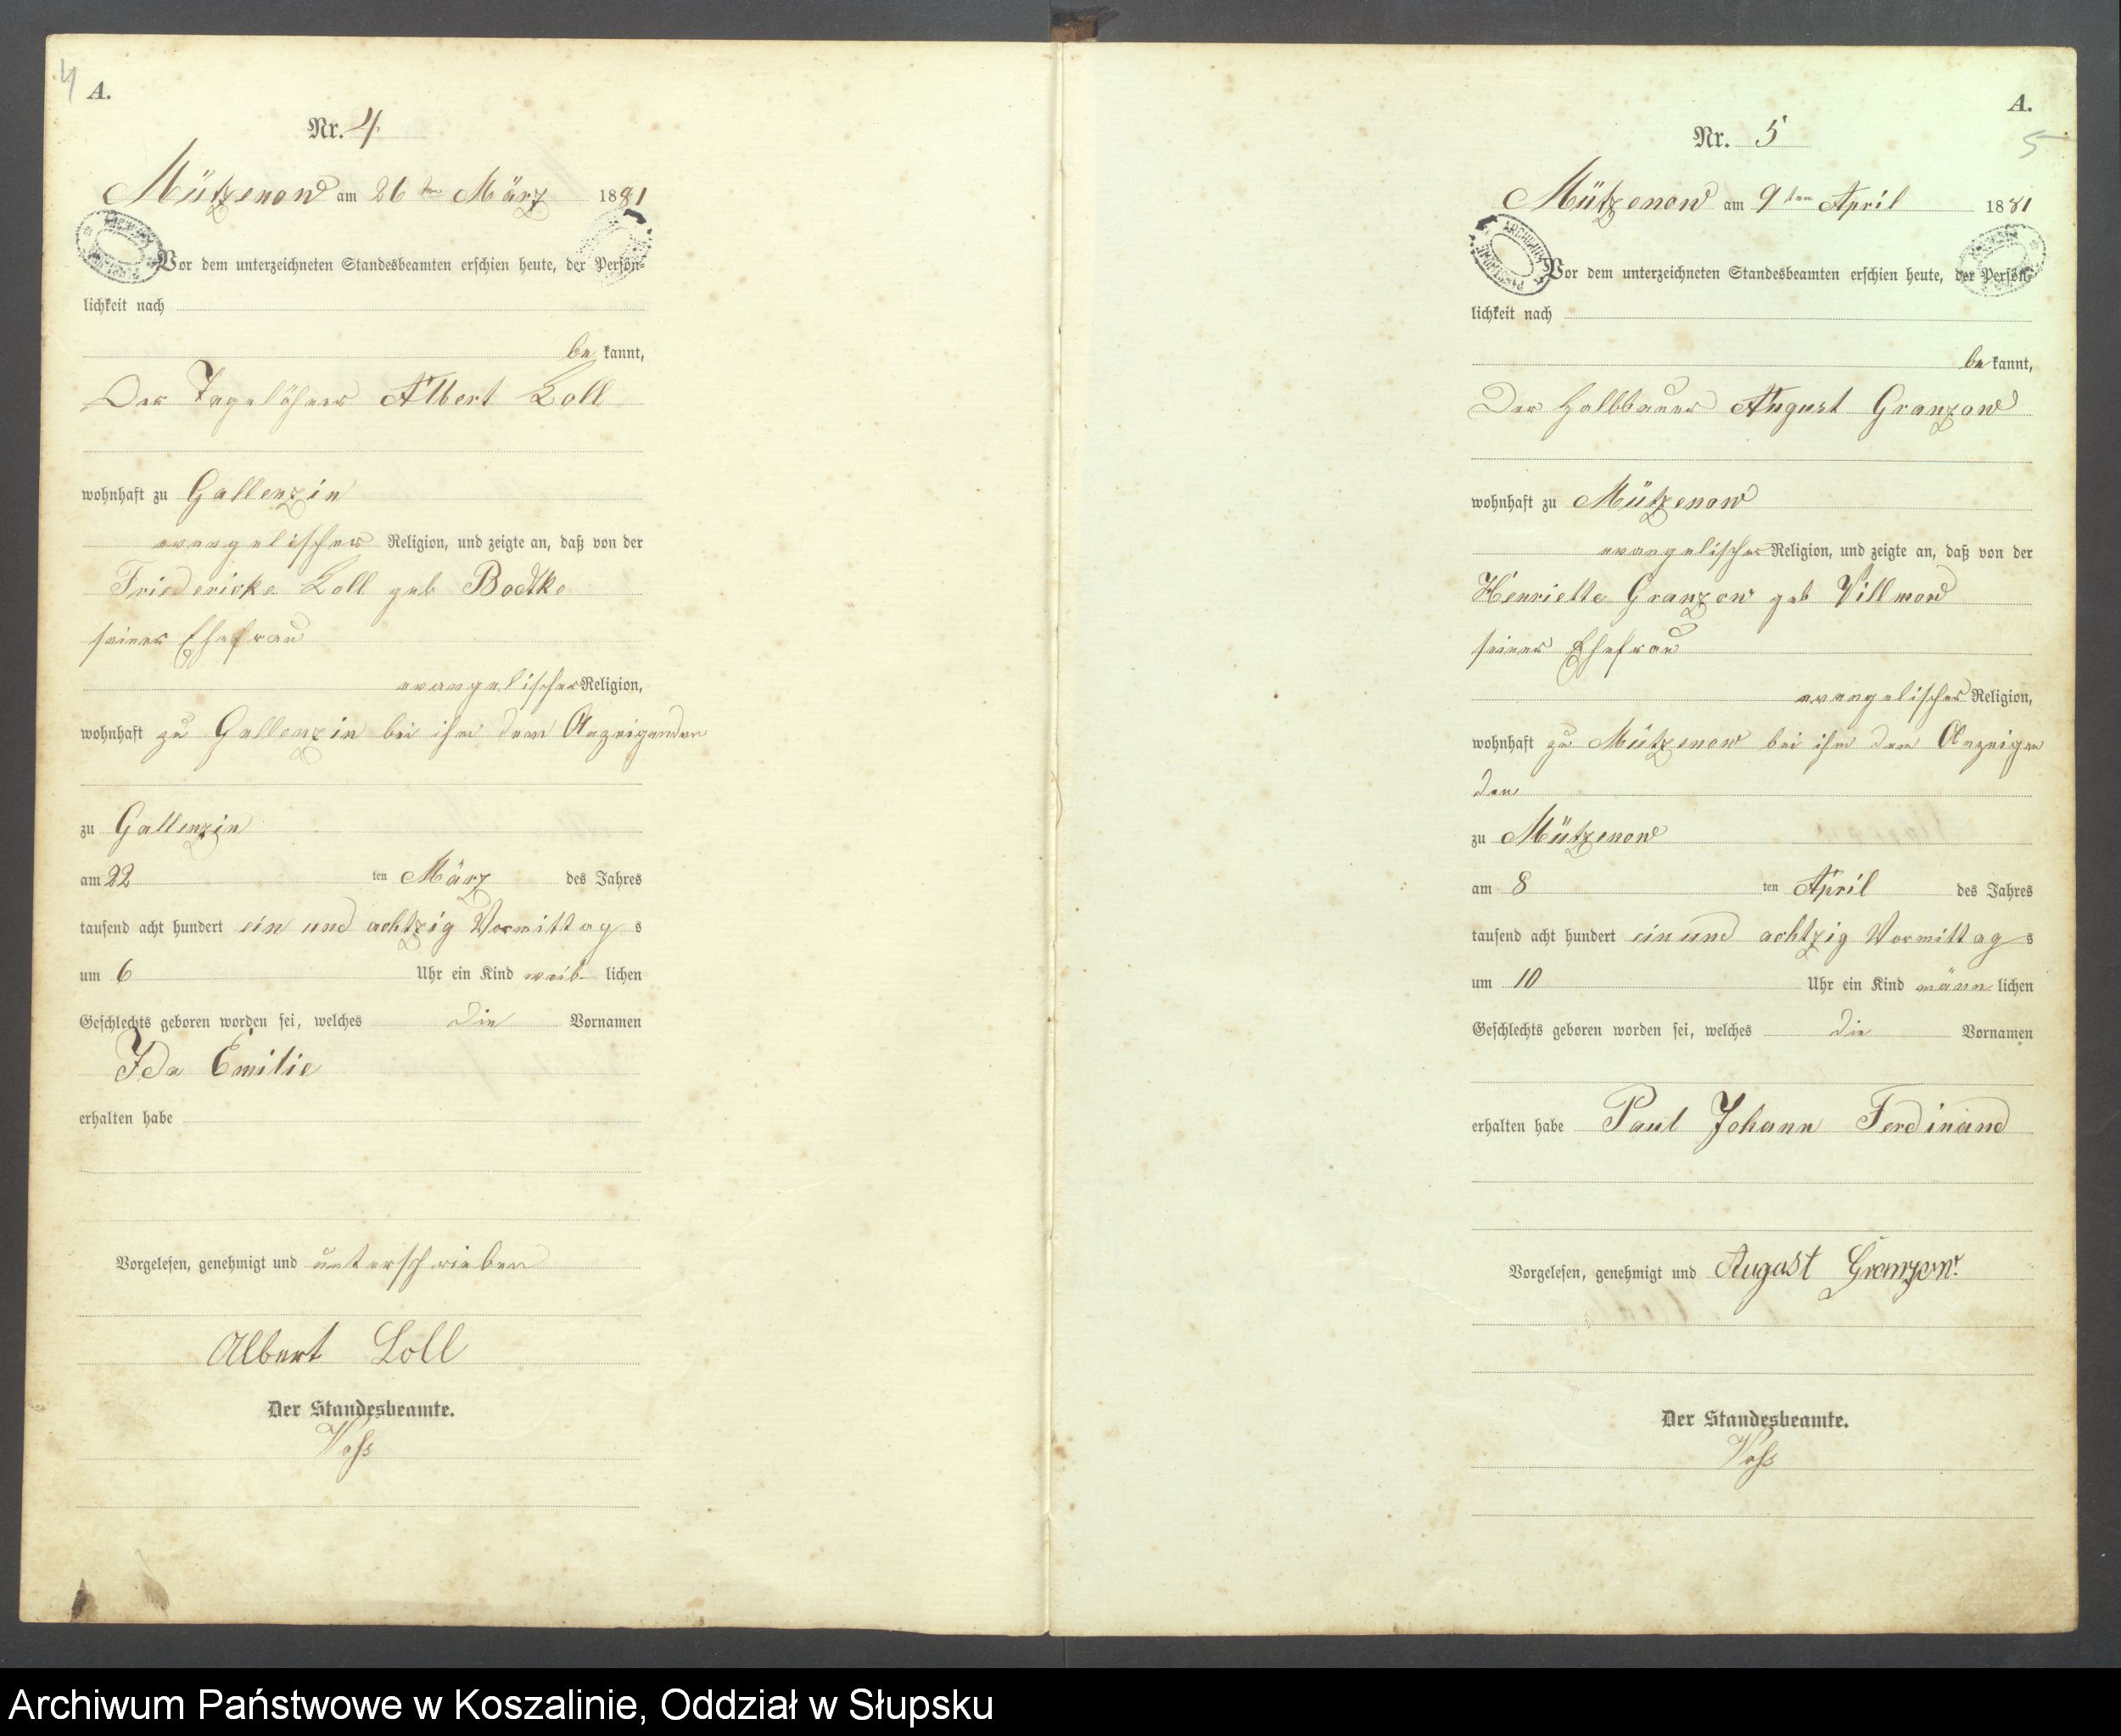 4
A.
Nr. 4
Mützenow am 26ten März 1881
Vor dem unterzeichneten Standesbeamten erschien heute, der Persön-
lichkeit nach
be kannt,
Der Tagelöhner Albert Loll
wohnhaft zu Gallenzin
evangelischer Religion, und zeigte an, daß von der
Friedericke Loll geb Badtke
seiner Ehefrau
evangelischer Religion,
wohnhaft zu Gallenzin bei ihm dem Anzeigenden
zu Gallenzin
am 22 ten März des Jahres
tausend acht hundert ein und achtzig Vormittag s
um 6 Uhr ein Kind weib lichen
Geschlechts geboren worden sei, welches die Vornamen
Ida Emilie
erhalten habe
Vorgelesen, genehmigt und unterschrieben
Albert Loll
Der Standesbeamte.
Voss
A.
5
Nr. 5
Mützenow am 9ten April 1881
Vor dem unterzeichneten Standesbeamten erschien heute, der Persön-
lichkeit nach
be kannt,
Der Halbbauer August Granzow
wohnhaft zu Mützenow
evangelischer Religion, und zeigte an, daß von der
Henriette Granzow geb Villmow
seiner Ehefrau
evangelischer Religion,
wohnhaft zu Mützenow bei ihm dem Anzeigen
den
zu Mützenow
am 8 ten April des Jahres
tausend acht hundert ein und achtzig Vormittag s
um 10 Uhr ein Kind männ lichen
Geschlechts geboren worden sei, welches die Vornamen
erhalten habe Paul Johann Ferdinand
Vorgelesen, genehmigt und August Granzow.
Der Standesbeamte.
Voss
Archiwum Państwowe w Koszalinie, Oddział w Słupsku